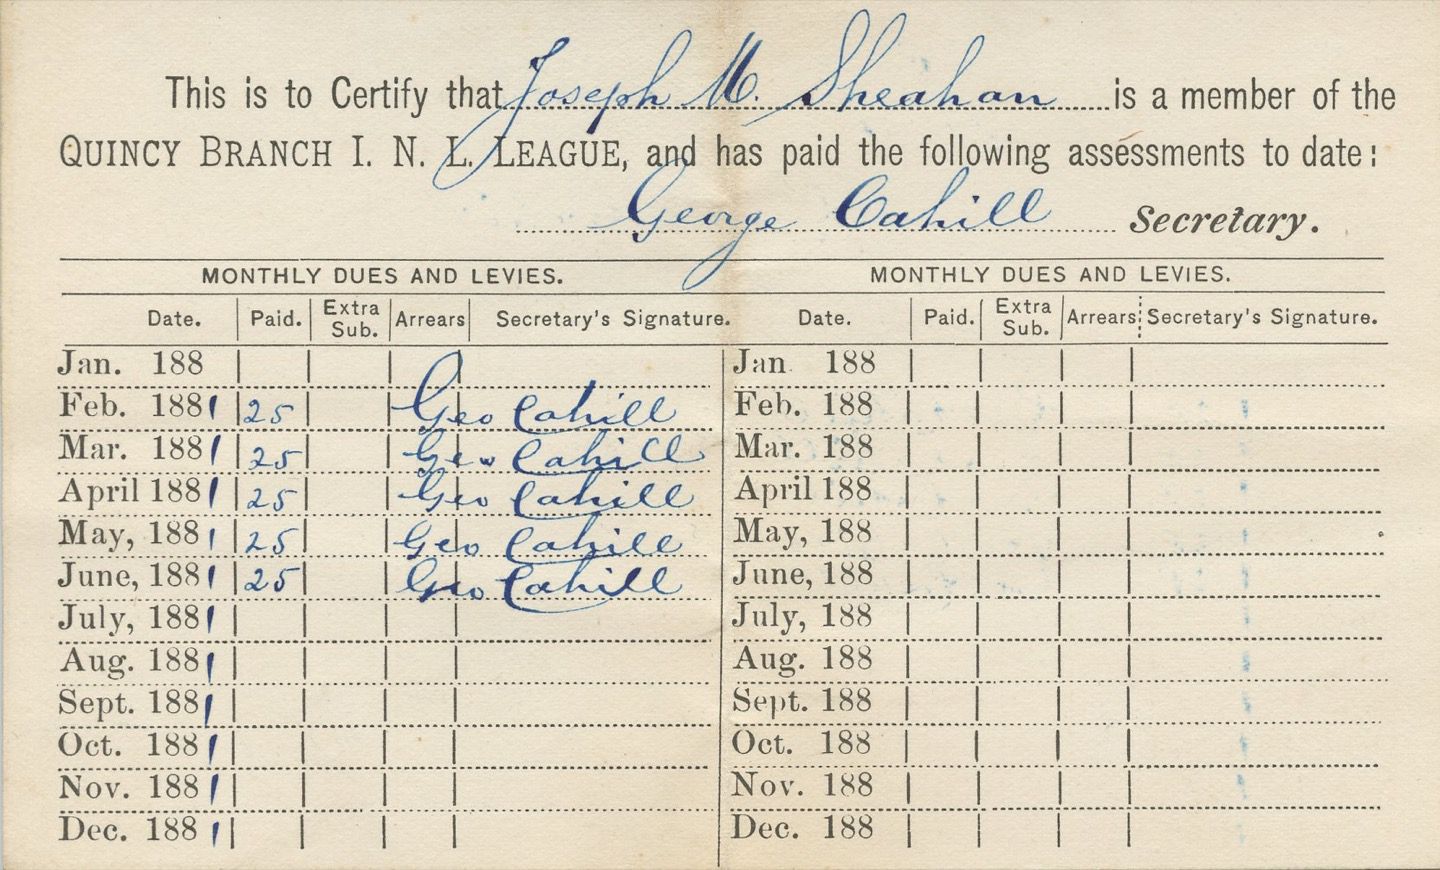 This is to Certify that Joseph M. Sheahan is a member of the
QUINCY BRANCH I. N. L. LEAGUE, and has paid the following assessments to date:
George Cahill Secretary.
MONTHLY DUES AND LEVIES. MONTHLY DUES AND LEVIES.
Date. Paid. Extra Sub. Arrears Secretary's Signature. Date. Paid. Extra Sub. Arrears Secretary's Signature.
Jan. 188 Jan 188
Feb. 1881 25 Geo Cahill Feb. 188
Mar. 1881 25 Geo Cahill Mar. 188
April 1881 25 Geo Cahill April 188
May, 1881 25 Geo Cahill May, 188
June, 1881 25 Geo Cahill June, 188
July, 1881 July, 188
Aug. 1881 Aug. 188
Sept. 1881 Sept. 188
Oct. 1881 Oct. 188
Nov. 1881 Nov. 188
Dec. 1881 Dec. 188